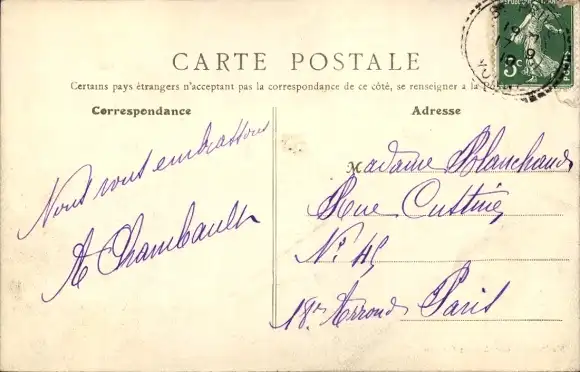 CARTE POSTALE
Certains pays étrangers n'acceptant pas la correspondance de ce côté, se renseigner a la
Correspondance
Adresse
Nous vous embrassons
A Chambault
Madame Blanchard
Rue Custine
No 45
18e Arrond Paris
5c
POSTES